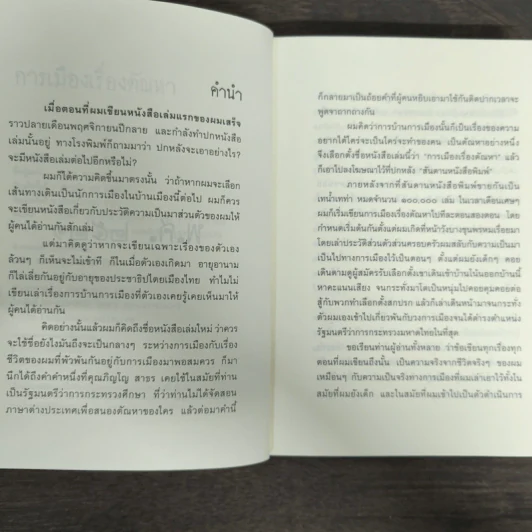 คำนำ
เมื่อตอนที่ผมเขียนหนังสือเล่มแรกของผมเสร็จ
ราวปลายเดือนพฤศจิกายนปีกลาย และกำลังทำปกหนังสือ
เล่มนั้นอยู่ ทางโรงพิมพ์ก็ถามมาว่า ปกหลังจะเอาอย่างไร?
จะมีหนังสือเล่มต่อไปอีกหรือไม่?
ผมก็ได้ความคิดขึ้นมาตรงนั้น ว่าถ้าหากผมจะเลือก
เส้นทางเดินเป็นนักการเมืองในบ้านเมืองนี้ต่อไป ผมก็ควร
จะเขียนหนังสือเกี่ยวกับประวัติความเป็นมาส่วนตัวของผมให้
ผู้คนได้อ่านกันสักเล่ม
แต่มาคิดดูว่าหากจะเขียนเฉพาะเรื่องของตัวเอง
ล้วนๆ ก็เห็นจะไม่เข้าที ก็ในเมื่อตัวเองเกิดมา อายุอานาม
ก็ไล่เลี่ยกันอยู่กับอายุของประชาธิปไตยเมืองไทย ทำไมไม่
เขียนเล่าเรื่องการบ้านการเมืองที่ตัวเองเคยรู้เคยเห็นมาให้
ผู้คนได้อ่าน
คิดอย่างนั้นแล้วผมก็คิดถึงชื่อหนังสือเล่มใหม่ ว่าควร
จะใช้ชื่อยังไงมันถึงจะเป็นกลางๆ ระหว่างการเมืองกับเรื่อง
ชีวิตของผมที่พัวพันกันอยู่กับการเมืองมาพอสมควร ก็มา
นึกได้ถึงคำคำหนึ่งที่คุณภิญโญ สาธร เคยใช้ในสมัยที่ท่าน
เป็นรัฐมนตรีว่าการกระทรวงศึกษา ที่ว่าท่านไม่ได้จัดสอน
ภาษาต่างประเทศเพื่อสนองตัณหาของใคร แล้วต่อมาคำนี้
ก็กลายมาเป็นถ้อยคำที่ผู้คนหยิบเอามาใช้กันติดปากเวลาจะ
พูดจาถากถางกัน
ผมคิดว่าการบ้านการเมืองนั้นก็เป็นเรื่องของความ
อยากได้ใคร่จะเป็นใคร่จะทำของคน เป็นตัณหาอย่างหนึ่ง
จึงเลือกตั้งชื่อหนังสือเล่มนี้ว่า "การเมืองเรื่องตัณหา" แล้ว
ก็เอาไปลงโฆษณาไว้ที่ปกหลัง "สันดานหนังสือพิมพ์"
ภายหลังจากที่สันดานหนังสือพิมพ์ขายกันเป็น
เทน้ำเทท่า หมดจำนวน ๑๐๐,๐๐๐ เล่ม ในเวลาเดือนเศษๆ
ผมก็เริ่มเขียนการเมืองเรื่องตัณหาไปทีละตอนสองตอน โดย
กำหนดเริ่มต้นกันตั้งแต่ผมเกิดที่หน้าวังบางขุนพรหมเรื่อยมา
โดยเล่าประวัติส่วนตัวส่วนครอบครัวผมสลับกับความเป็นมา
เป็นไปทางการเมืองไว้เป็นตอนๆ ตั้งแต่ผมยังเด็กๆ คอย
เดินตามดูผู้สมัครรับเลือกตั้งเขาเดินเข้าบ้านโน้นออกบ้านนี้
หาคะแนนเสียง จนกระทั่งมาโตเป็นหนุ่มไปคอยคุมคอยต่อ
สู้กับพวกทำเลือกตั้งสกปรก แล้วก็เล่าเดินหน้ามาจนกระทั่ง
ตัวผมเองเข้าไปเกี่ยวพันกับวงการเมืองจนได้ดำรงตำแหน่ง
รัฐมนตรีว่าการกระทรวงมหาดไทยในที่สุด
ขอเรียนท่านผู้อ่านทั้งหลาย ว่าข้อเขียนทุกเรื่องทุก
ตอนที่ผมเขียนถึงนั้น เป็นความจริงจากชีวิตจริงๆ ของผม
เหมือนๆ กับความเป็นจริงทางการเมืองที่ผมเล่าเอาไว้ทั้งใน
สมัยที่ผมยังเด็ก และในสมัยที่ผมเข้าไปเป็นตัวดำเนินการ